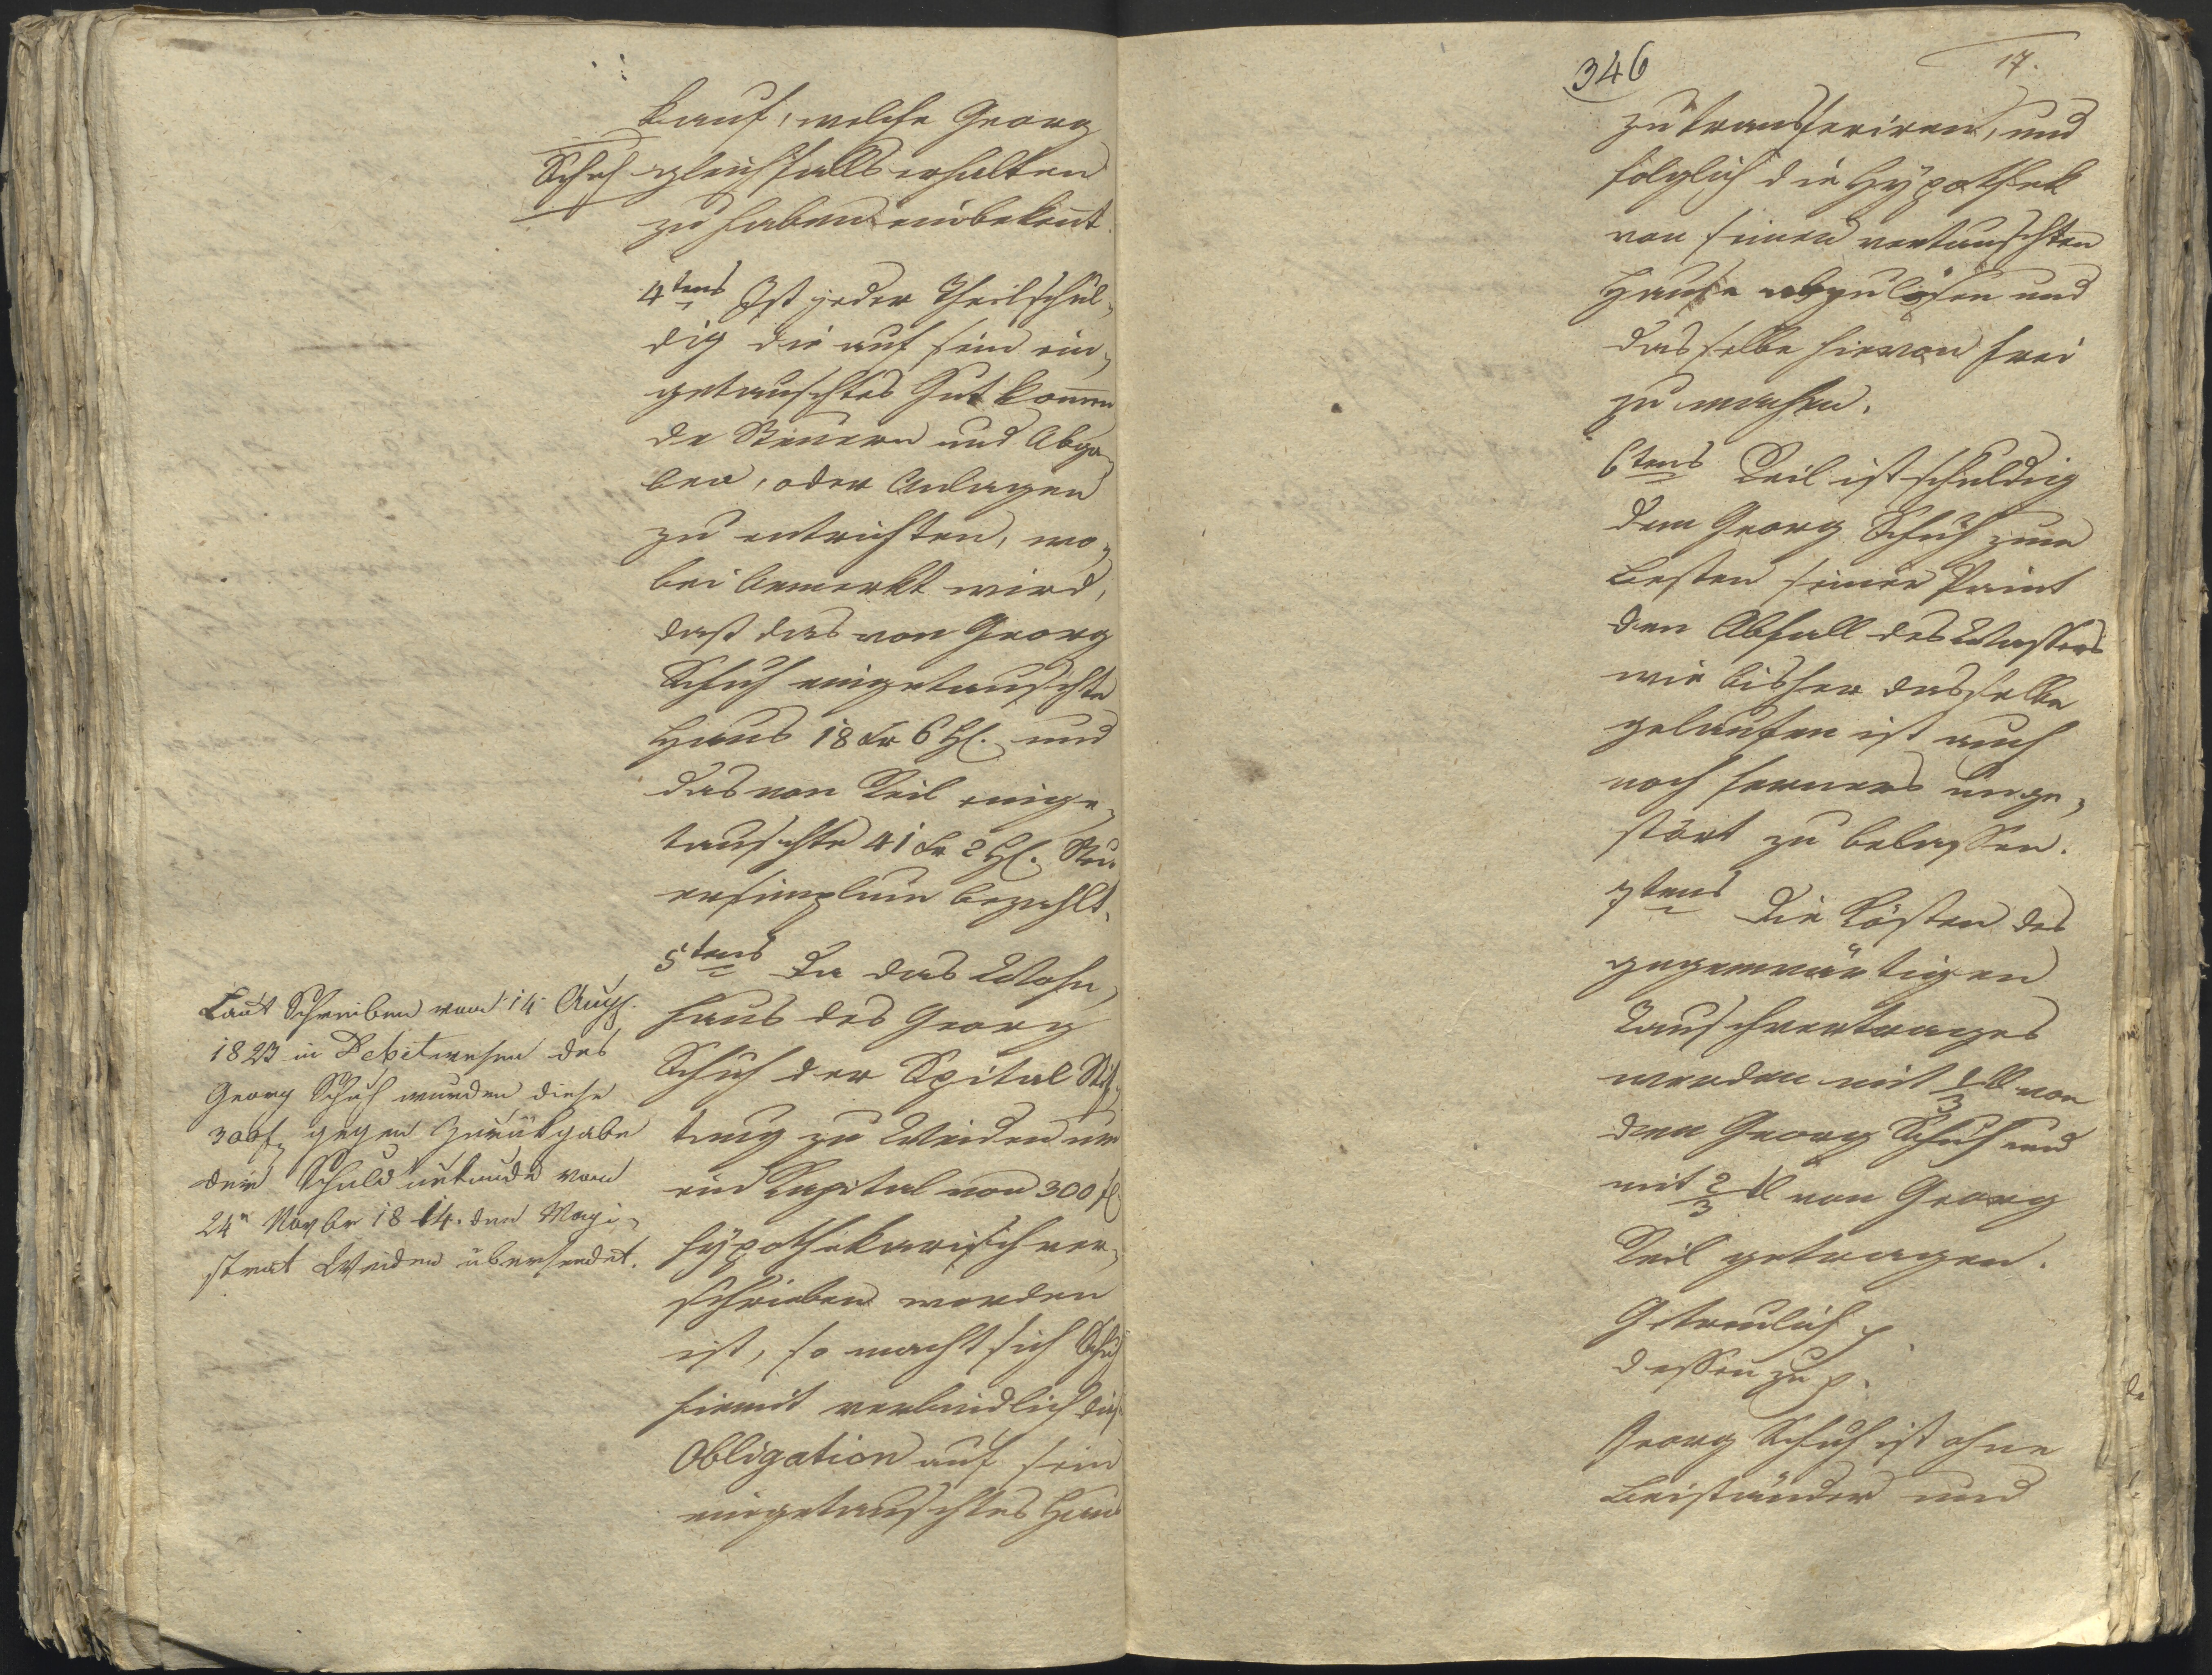 kauf, welche Georg
Schuh gleichfalls erhalten
zu haben einbekent.
4tens Ist jeder Theil schul-
dig die auf sein ein-
getauschtes Gut kommen
de Steuern und Abga-
ben, oder Anlagen
zu entrichten, wo-
bei bemerkt wird,
daß das von Georg
Schuh eingetauschte
Haus 18 xr 6 hl. und
das von Teil einge-
tauschte 41 xr 2 hl. Steu
ersimplum bezahlt.
5tens Da das Wohn-
haus des Georg
Schuh der Spital Stif-
tung zu Weiden um
ein Kapital von 300 fl
hypothekarisch ver-
schrieben worden
ist, so macht sich Schuh
hiemit verbindlich diese
Obligation auf sein
eingetauschtes Haus
Laut Schreiben vom 14 Augst.
1823 in Debitwesen des
Georg Schuh wurden diese
300 f. gegen Zurükgabe
der Schuld urkunde vom
24n Novbr 1814. dem Magi-
strat Weiden übersendet.
346
17.
zu transferiren, und
folglich die Hypothek
von seinen vertauschten
Hause abzulösen und
dasselbe hievon frei
zu machen.
6tens Teil ist schuldig
dem Georg Schuh zum
Besten seiner Peint
den Abfall des Wassers
wie bisher dasselbe
gelaufen ist auch
noch ferners unge-
stört zu belassen.
7tens Die Kösten des
gegenwärtigen
Tauschvertrages
werden mit 1/3tl von
dem Georg Schuh und
mit 2/3 tl von Georg
Teil getragen.
Getreulich p.
dessen zu p.
Georg Schuh ist ohne
Beiständer und